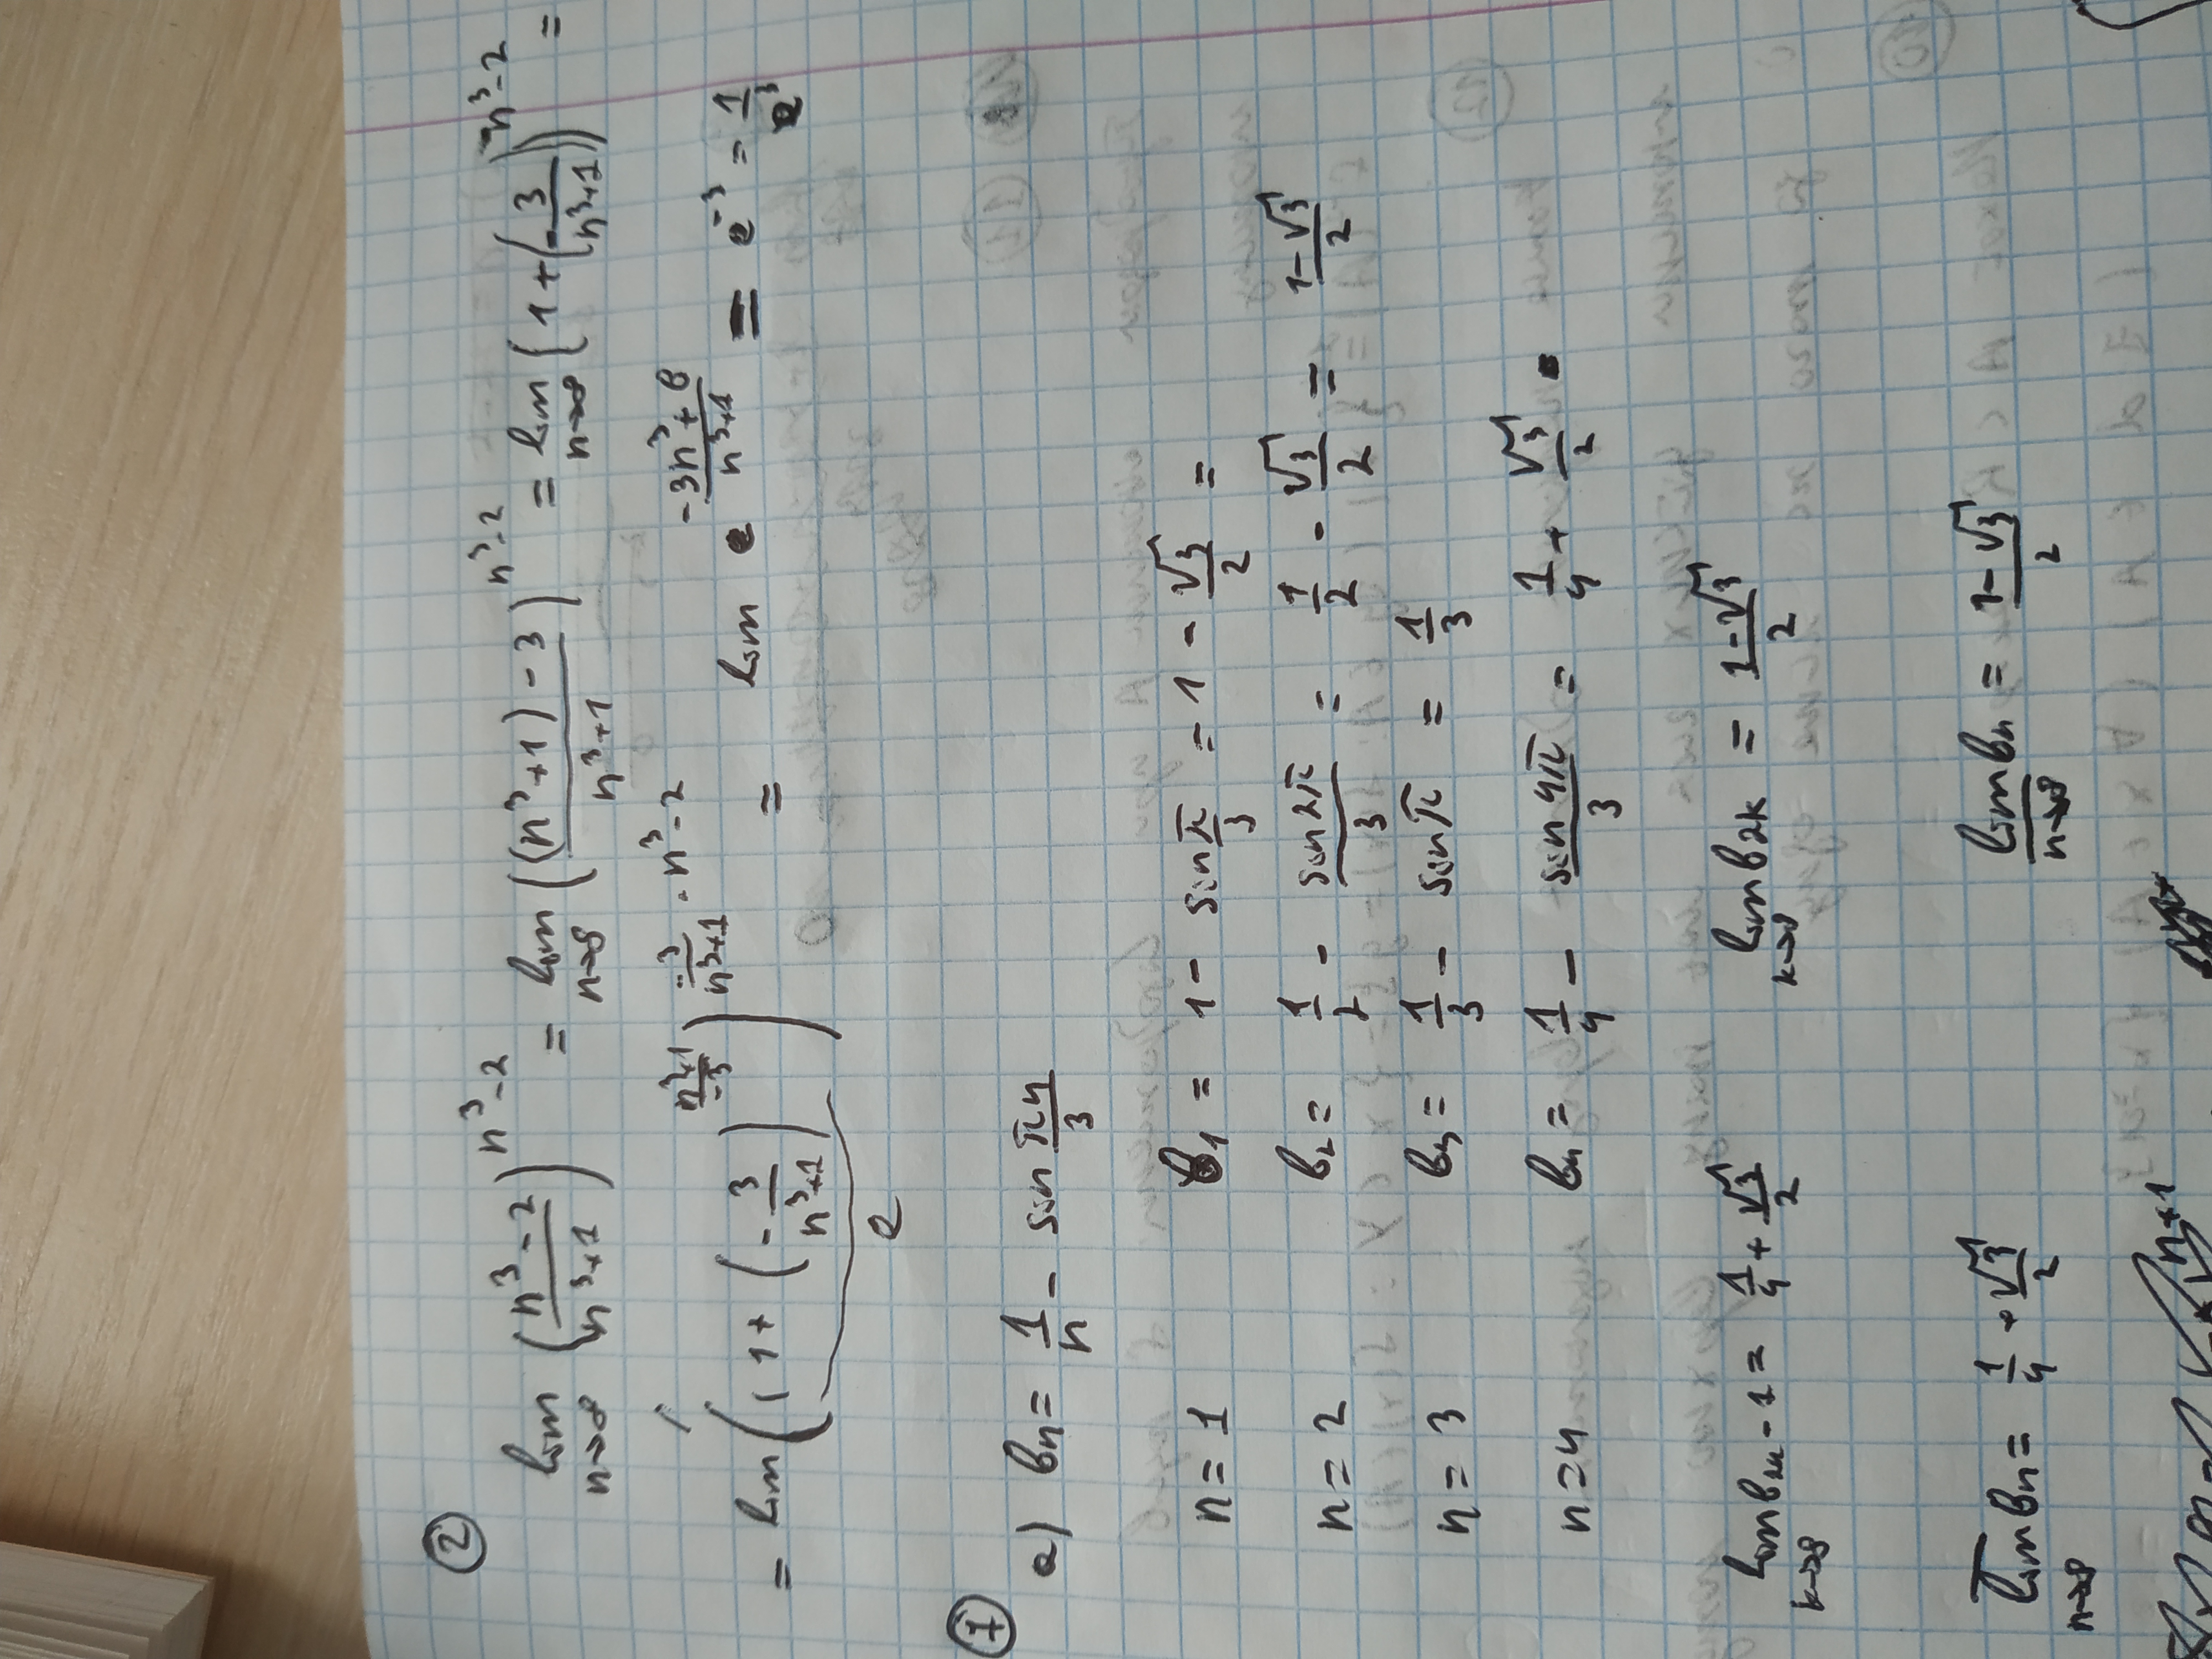 ②
lim n→∞ ((n³-2)/(n³+1))^(n³-2) = lim n→∞ (((n³+1)-3)/(n³+1))^(n³-2) = lim n→∞ (1+(-3/(n³+1)))^(n³-2) =
= lim ((1+(-3/(n³+1)))^((n³+1)/-3))^(-3/(n³+1) · n³-2) = lim e^((-3n³+6)/(n³+1)) = e^-3 = 1/e³
e
⑦ a) bn = 1/n - sin πn/3
n=1 b₁ = 1 - sin π/3 = 1 - √3/2 =
n=2 b₂ = 1/2 - sin 2π/3 = 1/2 - √3/2 = (1-√3)/2
n=3 b₃ = 1/3 - sin π = 1/3
n=4 b₄ = 1/4 - sin 4π/3 = 1/4 + √3/2
lim k→∞ = 1/4 + √3/2 lim k→∞ b2k = (1-√3)/2
lim n→∞ bn = 1/4 + √3/2 lim n→∞ bn = (1-√3)/2
n+1